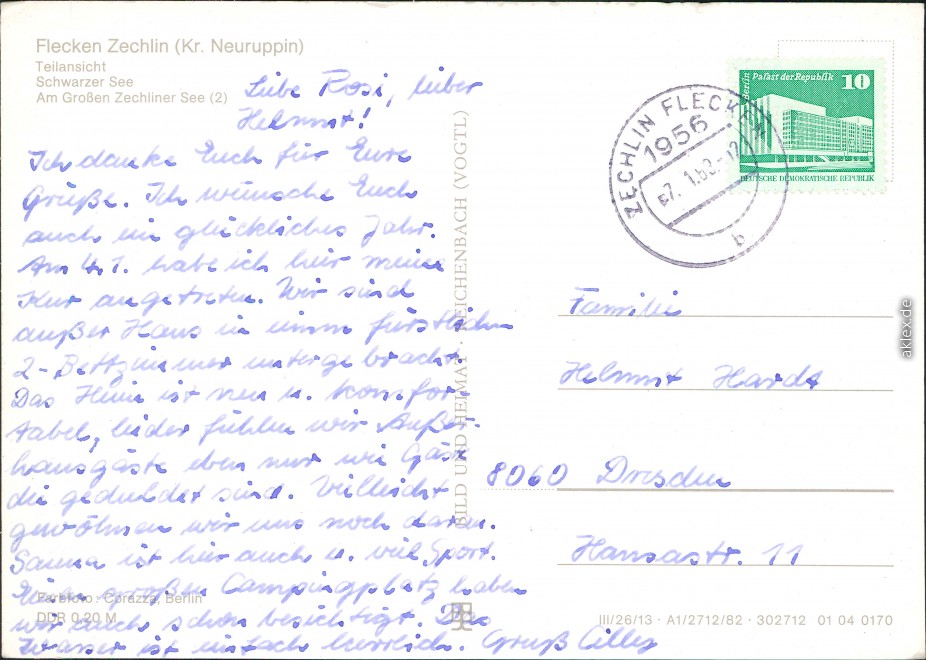 Flecken Zechlin (Kr. Neuruppin)
Teilansicht
Schwarzer See
Am Großen Zechliner See (2)
Liebe Rosi, lieber
Helmut!
Ich danke Euch für Eure
Grüße. Ich wünsche Euch
auch ein glückliches Jahr.
Am 4.1. habe ich hier meine
Kur angetreten. Wir sind
außer Haus in einem fürstlichen
2-Bettzimmer untergebracht.
Das Heim ist neu u. komfor-
tabel, leider fühlen wir Außer-
hausgäste eben nur wie Gäste
die geduldet sind. Vielleicht
gewöhnen wir uns noch daran.
Sauna ist hier auch u. viel Sport.
Einen großen Campingplatz haben
wir auch schon besichtigt. Das
Wasser ist einfach herrlich. Gruß Cilly
Farbfoto: Corazza, Berlin
DDR 0,20 M
BILD UND HEIMAT · REICHENBACH (VOGTL)
ZECHLIN FLECKEN
1956
-7. 1.83.-12
b
Palast der Republik
10
DEUTSCHE DEMOKRATISCHE REPUBLIK
Familie
Helmut Hardt
8060 Dresden
Hansastr. 11
III/26/13 · A1/2712/82 · 302712 01 04 0170
aklex.de